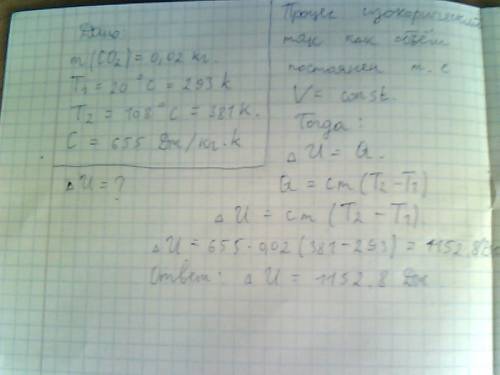 Дано
m(CO₂) = 0,02 кг.
T₁ = 20°C = 293 k
T₂ = 108°C = 381 k.
C = 655 Дж/кг·k
ΔU = ?
Процес изохорический
так как объём
постоянен т. е
V = const.
Тогда:
ΔU = Q.
Q = cm(T₂-T₁)
ΔU = cm (T₂ - T₁).
ΔU = 655·0,02 (381-293) = 1152,8
Ответ: ΔU = 1152,8 Дж